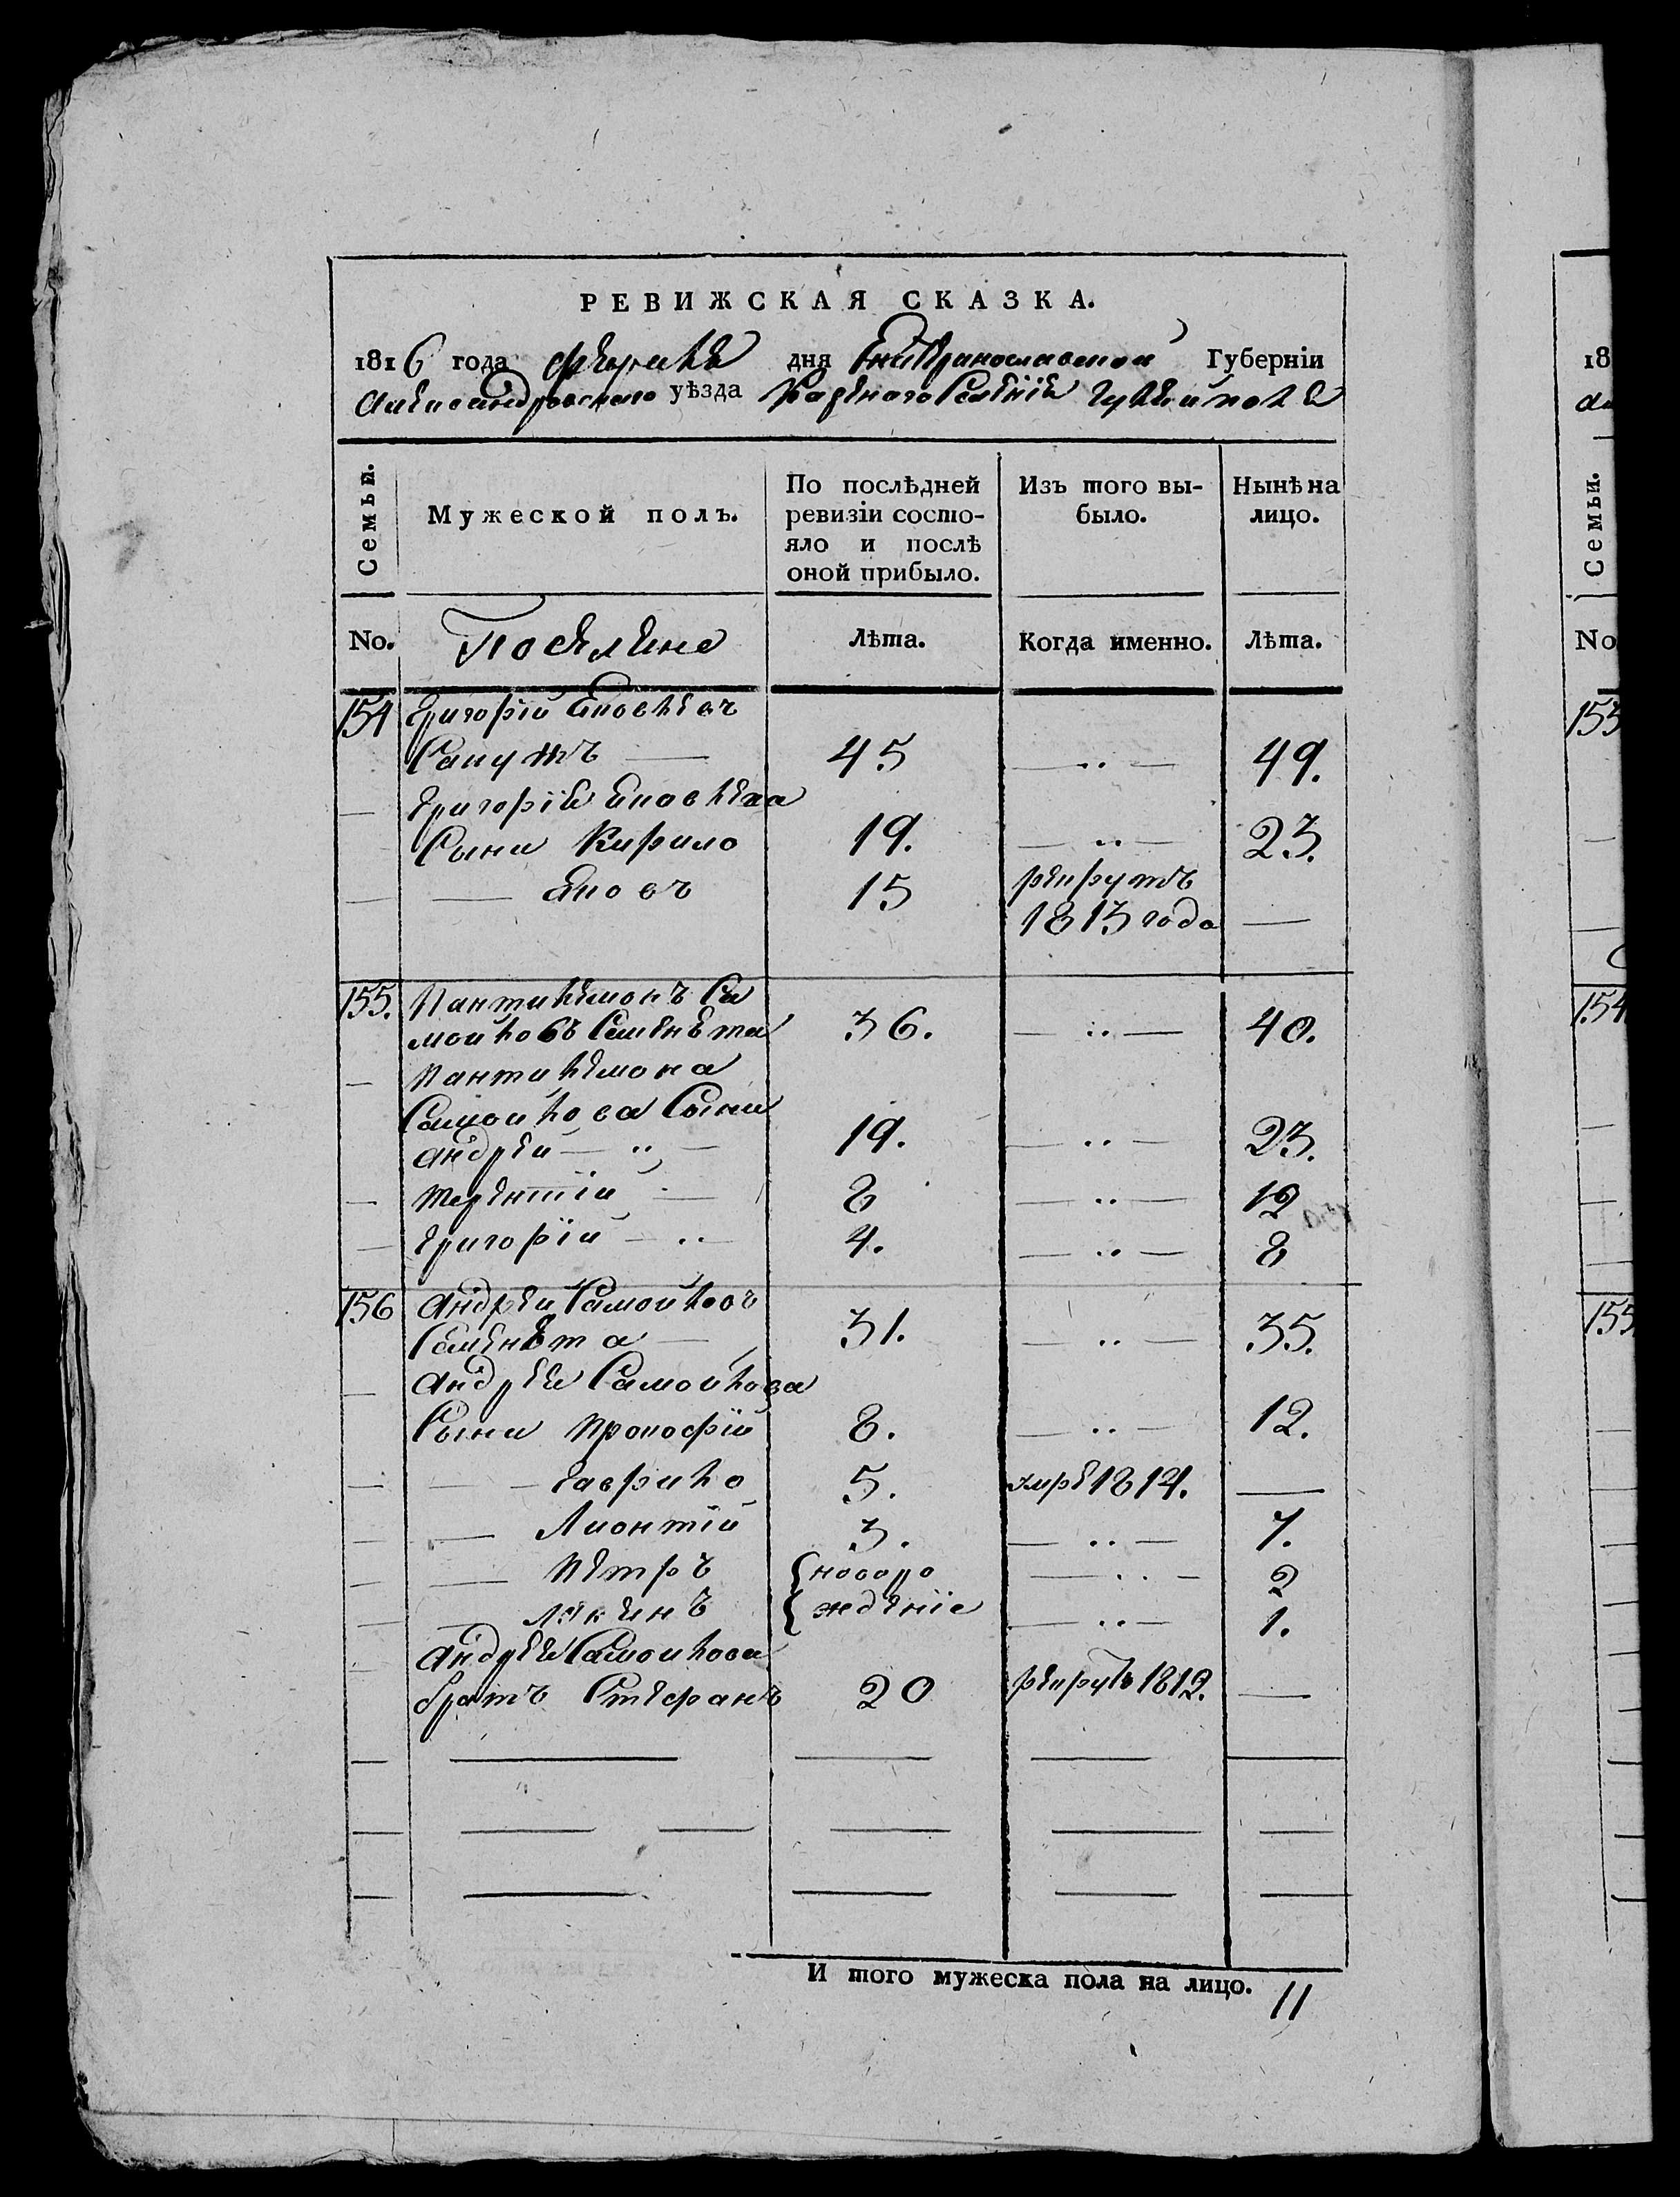 РЕВИЖСКАЯ СКАЗКА.
1816 года февраля дня Екатеринославской Губерніи
Александровского уѣзда Казенного Селенія Гуляйполя
Семьи.
Мужеской полъ.
По послѣдней ревизіи состояло и послѣ оной прибыло.
Изъ того выбыло.
Нынѣ на лицо.
No. Поселяне Лѣта. Когда именно. Лѣта.
154 Григорій
45 49.
Григорія
Сыни Кирило 19. 23.
15 рекрутъ
1813 года
155. Пантилемонъ Са
мойловъ Семенѣта 36. 40.
Пантилемона
Самойлова Сыни
Андрей 19. 23.
Терентій 8 12
Григорій 4. 8
156 Андрей Самойловъ
Семенѣта 31. 35.
Андрея Самойлова
Сыни Прокофій 8. 12.
Гаврило 5. умре 1814.
Лионтій 3. 7.
Петръ новоро 2
жденіе 1.
Андрея Самойлова
братъ Стефанъ 20 рекрутъ 1812.
И того мужеска пола на лицо. 11
18
Семьи.
No
153
154
155